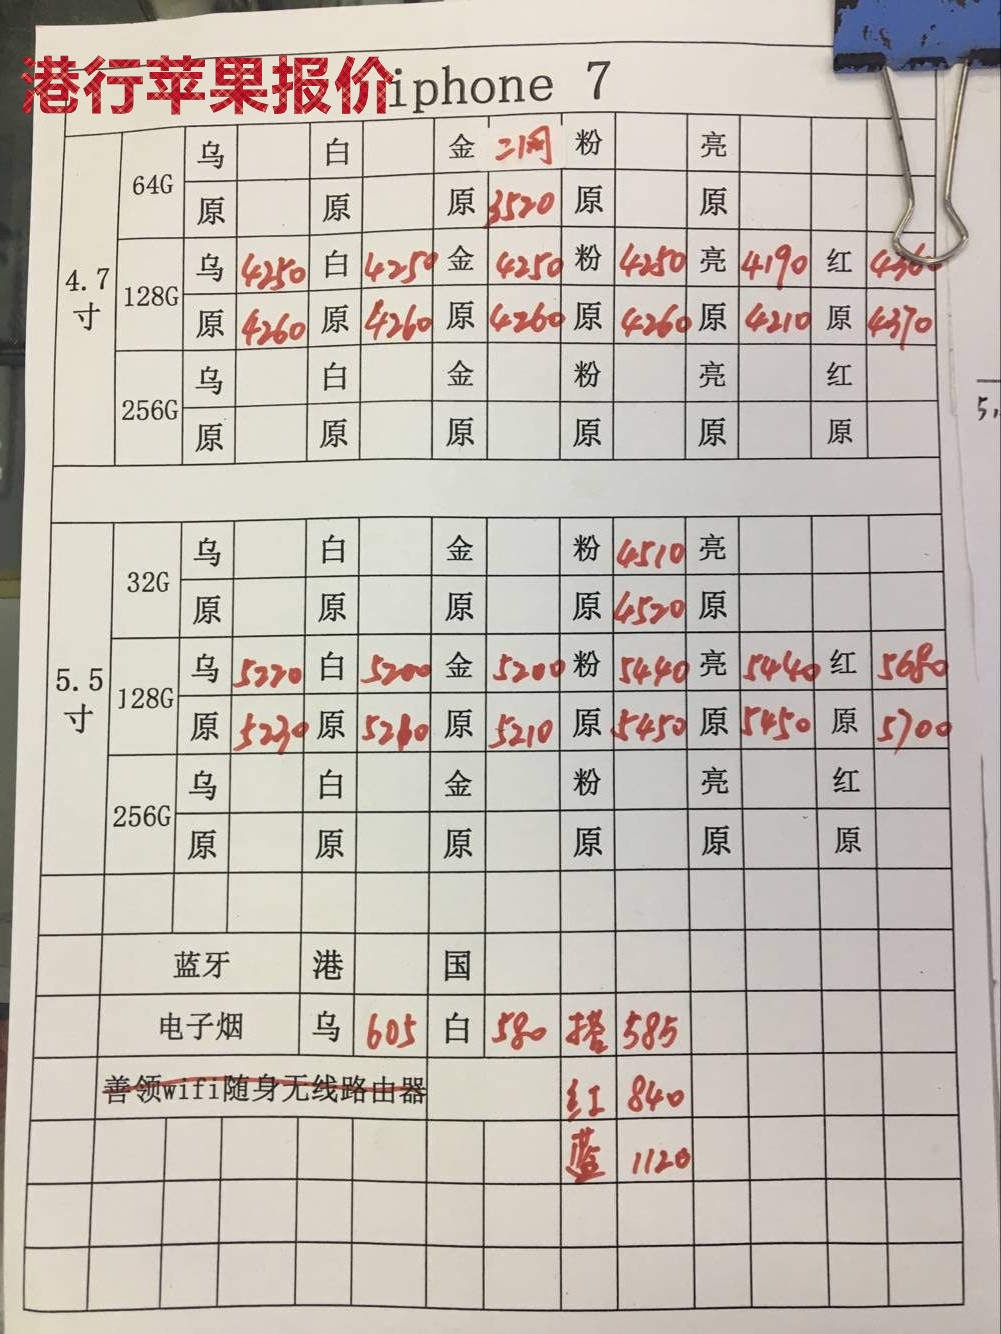 港行苹果报价
iphone 7
4.7寸
64G 乌 白 金 二网 粉 亮
原 原 原 3520 原 原
128G 乌 4250 白 4250 金 4250 粉 4250 亮 4190 红 4360
原 4260 原 4260 原 4260 原 4260 原 4210 原 4370
256G 乌 白 金 粉 亮 红
原 原 原 原 原 原
5.5寸
32G 乌 白 金 粉 4510 亮
原 原 原 原 4520 原
128G 乌 5220 白 5200 金 5200 粉 5440 亮 5440 红 5680
原 5230 原 原 5210 原 5450 原 5450 原 5700
256G 乌 白 金 粉 亮 红
原 原 原 原 原 原
蓝牙 港 国
电子烟 乌 605 白 580 搭 585
善领wifi随身无线路由器 红 840
蓝 1120
5.